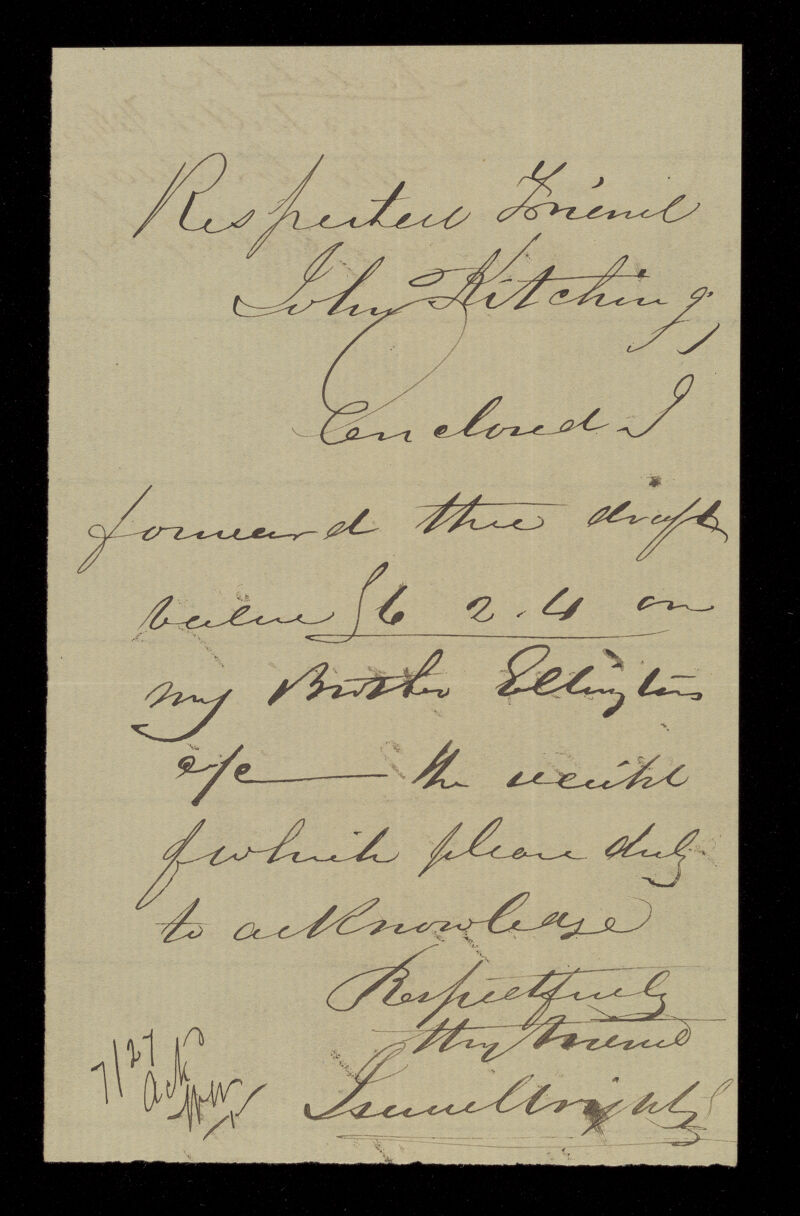 Respected Friend
John Kitching,
Enclosed I
forward thee draft
value £6 2.4 on
my Brother Ellingtons
a/c — the receipt
of which please duly
to acknowledge
Respectfully
thy Friend
Wright
7/27
Ack